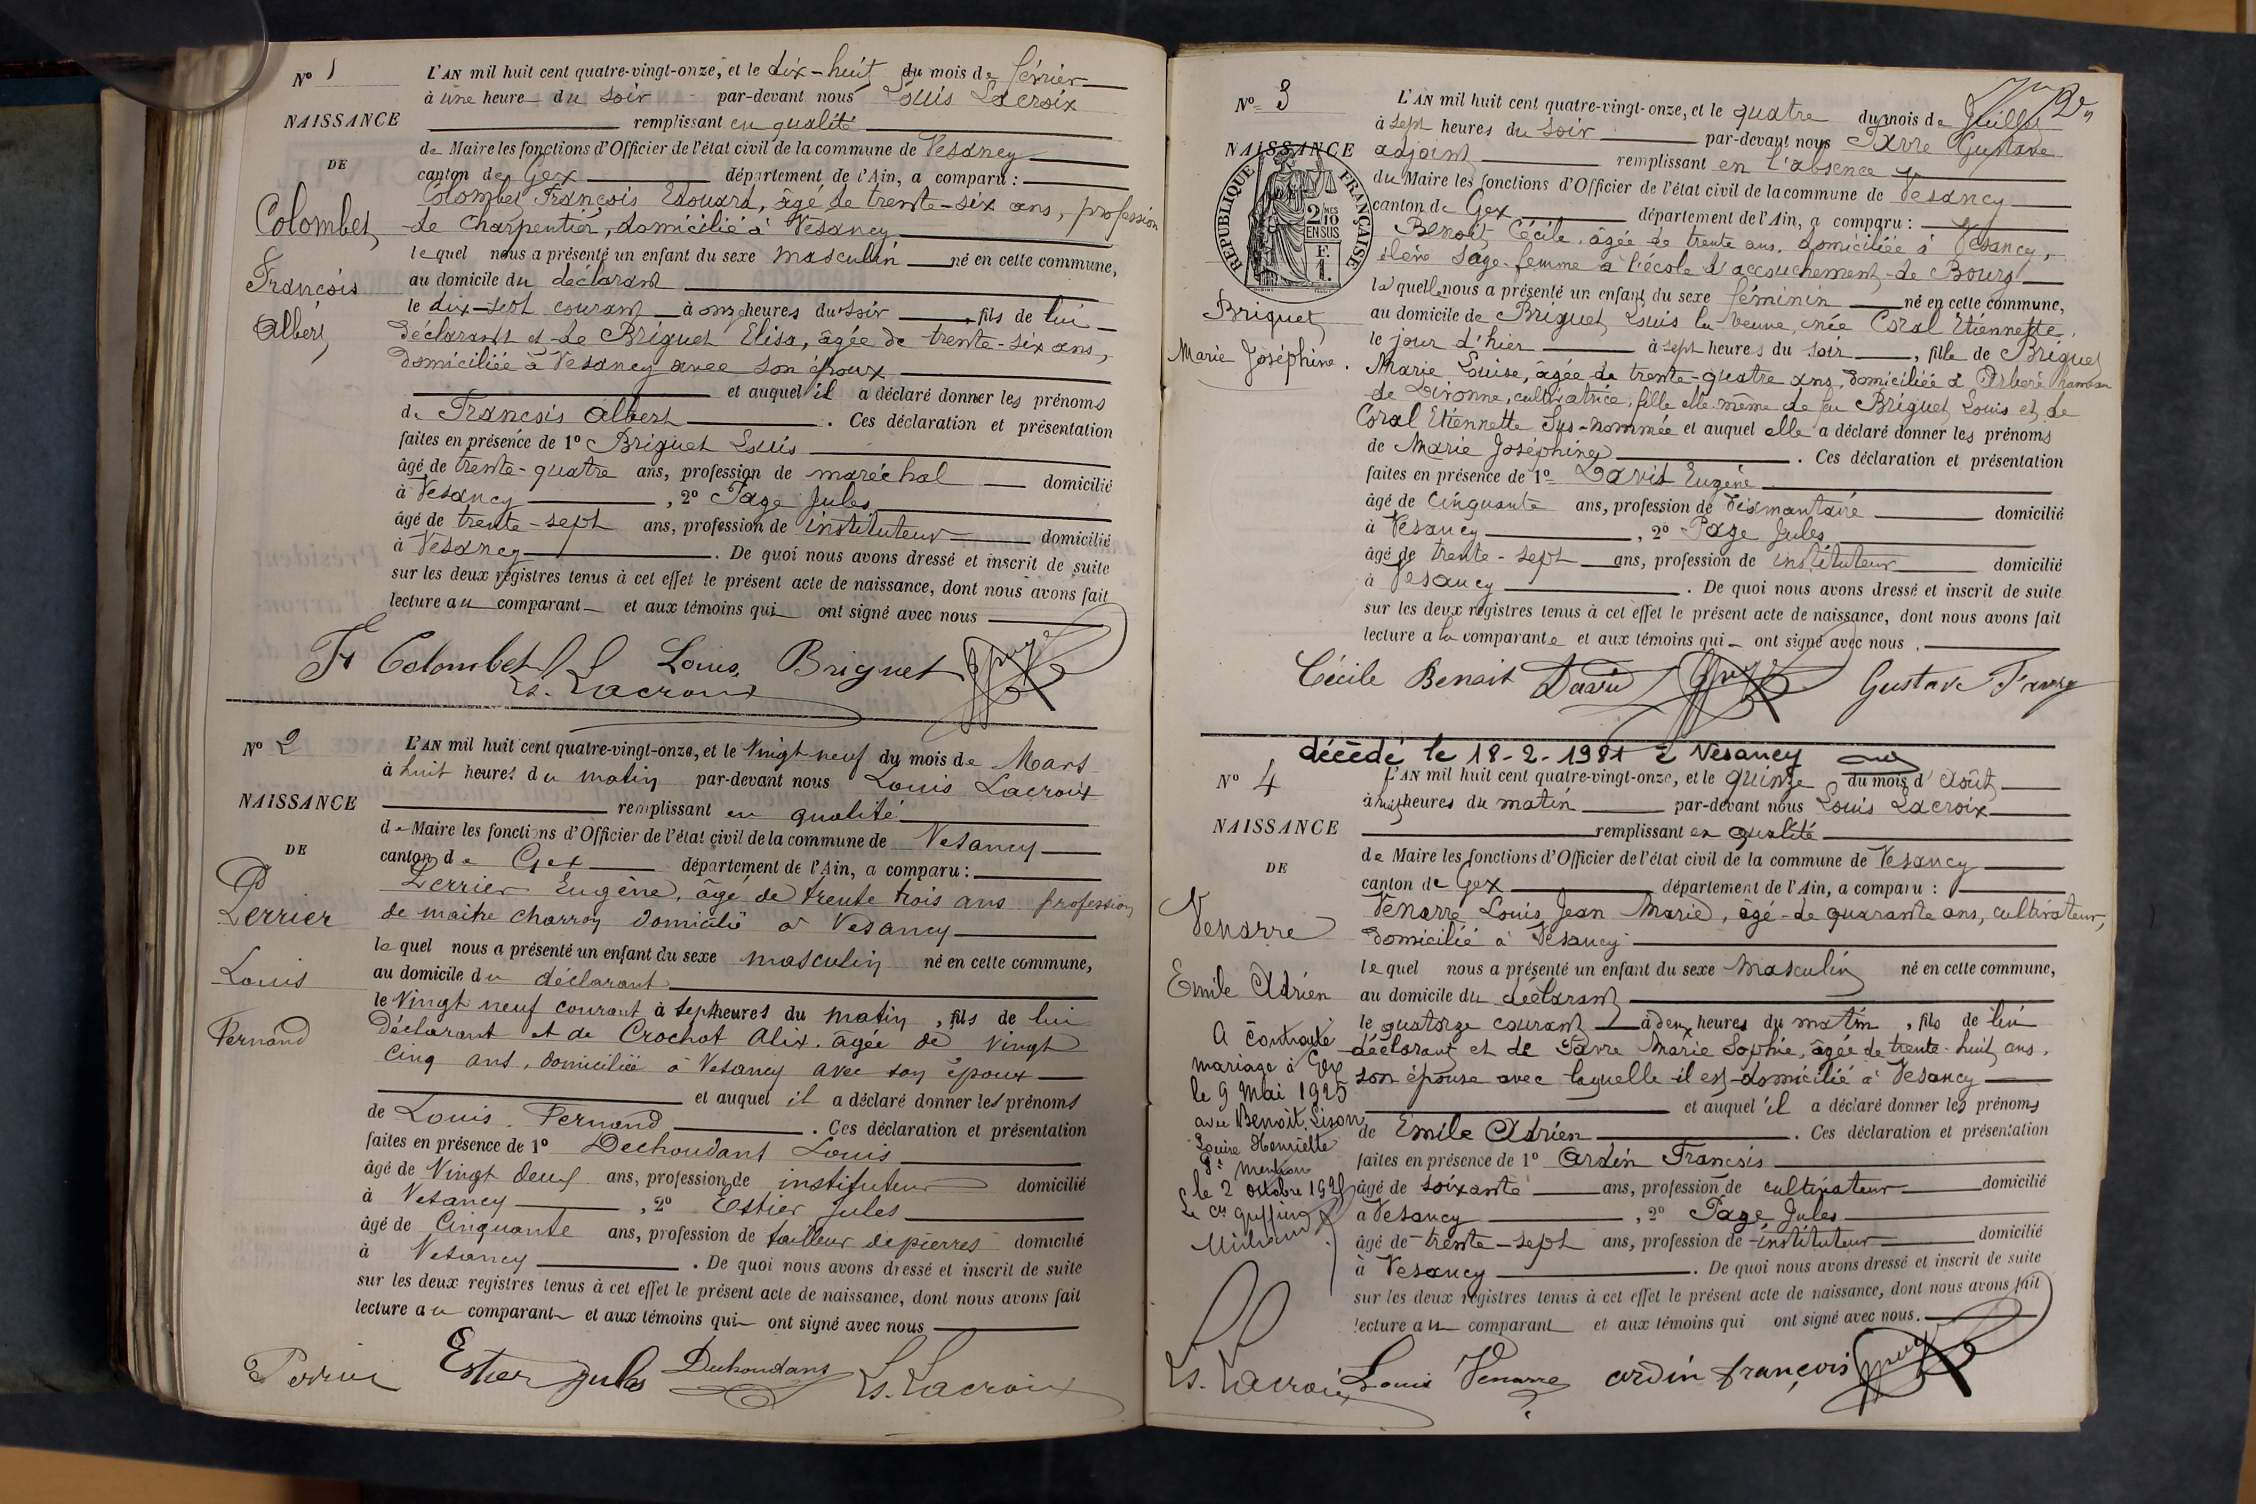 N° 1
NAISSANCE
DE
Colombet
François
Albert
L'AN mil huit cent quatre-vingt-onze, et le dix-huit du mois de février
à une heure du soir par-devant nous Louis Lacroix
remplissant en qualité
de Maire les fonctions d'Officier de l'état civil de la commune de Vesancy
canton de Gex département de l'Ain, a comparu :
Colombet François Edouard, âgé de trente-six ans, profession
de charpentier, domicilié à Vesancy
lequel nous a présenté un enfant du sexe masculin né en cette commune,
au domicile du déclarant
le dix-sept courant à onze heures du soir, fils de lui
déclarant et de Briquet Elisa, âgée de trente-six ans,
domiciliée à Vesancy avec son époux
et auquel il a déclaré donner les prénoms
de François Albert. Ces déclaration et présentation
faites en présence de 1° Briquet Louis
âgé de trente-quatre ans, profession de maréchal domicilié
à Vesancy, 2° Page Jules
âgé de trente-sept ans, profession de instituteur domicilié
à Vesancy. De quoi nous avons dressé et inscrit de suite
sur les deux registres tenus à cet effet le présent acte de naissance, dont nous avons fait
lecture au comparant et aux témoins qui ont signé avec nous
Fs Colombet Louis Briquet
Ls. Lacroix
N° 2
NAISSANCE
DE
Perrier
Louis
Fernand
L'AN mil huit cent quatre-vingt-onze, et le vingt neuf du mois de Mars
à huit heures du matin par-devant nous Louis Lacroix
remplissant en qualité
de Maire les fonctions d'Officier de l'état civil de la commune de Vesancy
canton de Gex département de l'Ain, a comparu :
Perrier Eugène, âgé de trente trois ans profession
de maître charron domicilié à Vesancy
lequel nous a présenté un enfant du sexe masculin né en cette commune,
au domicile du déclarant
le vingt neuf courant à sept heures du matin, fils de lui
déclarant et de Crochot Alix, âgée de vingt
cinq ans, domiciliée à Vesancy avec son époux
et auquel il a déclaré donner les prénoms
de Louis Fernand. Ces déclaration et présentation
faites en présence de 1° Dechoudant Louis
âgé de vingt deux ans, profession de instituteur domicilié
à Vesancy, 2° Estier Jules
âgé de cinquante ans, profession de tailleur de pierres domicilié
à Vesancy. De quoi nous avons dressé et inscrit de suite
sur les deux registres tenus à cet effet le présent acte de naissance, dont nous avons fait
lecture au comparant et aux témoins qui ont signé avec nous
Perrier Estier Jules Dechoudans Ls. Lacroix
N° 3
NAISSANCE
RÉPUBLIQUE FRANÇAISE
2/10 MES EN SUS
F. 1.
Briquet
Marie Joséphine.
L'AN mil huit cent quatre-vingt-onze, et le quatre du mois de Juillet
à sept heures du soir par-devant nous Favre Gustave
adjoint remplissant en l'absence
du Maire les fonctions d'Officier de l'état civil de la commune de Vesancy
canton de Gex département de l'Ain, a comparu :
Benoit Cécile, âgée de trente ans, domiciliée à Vesancy,
élève sage-femme à l'école d'accouchement de Bourg
laquelle nous a présenté un enfant du sexe féminin né en cette commune,
au domicile de Briquet Louis la veuve, née Coral Etiennette,
le jour d'hier à sept heures du soir, fille de Briquet
Marie Louise, âgée de trente-quatre ans, domiciliée à Arbère hameau
de Divonne, cultivatrice, fille elle-même de feu Briquet Louis et de
Coral Etiennette sus-nommée et auquel elle a déclaré donner les prénoms
de Marie Joséphine. Ces déclaration et présentation
faites en présence de 1° David Eugène
âgé de cinquante ans, profession de diamantaire domicilié
à Vesancy, 2° Page Jules
âgé de trente-sept ans, profession de instituteur domicilié
à Vesancy. De quoi nous avons dressé et inscrit de suite
sur les deux registres tenus à cet effet le présent acte de naissance, dont nous avons fait
lecture a la comparante et aux témoins qui ont signé avec nous.
Cécile Benoit David Gustave Favre
décédé le 18-2-1981 à Vesancy
N° 4
NAISSANCE
DE
Venarre
Emile Adrien
A contracté
mariage à Gex
le 9 Mai 1925
avec Benoit Lison
Louise Henriette
Pr mention
le 2 octobre
Le Cis Greffier
L'AN mil huit cent quatre-vingt-onze, et le quinze du mois d'Août
à huit heures du matin par-devant nous Louis Lacroix
remplissant en qualité
de Maire les fonctions d'Officier de l'état civil de la commune de Vesancy
canton de Gex département de l'Ain, a comparu :
Venarre Louis Jean Marie, âgé de quarante ans, cultivateur,
domicilié à Vesancy
lequel nous a présenté un enfant du sexe masculin né en cette commune,
au domicile du déclarant
le quatorze courant à deux heures du matin, fils de lui
déclarant et de Favre Marie Sophie, âgée de trente-huit ans,
son épouse avec laquelle il est domicilié à Vesancy
et auquel il a déclaré donner les prénoms
de Emile Adrien. Ces déclaration et présentation
faites en présence de 1° Ardin François
âgé de soixante ans, profession de cultivateur domicilié
à Vesancy, 2° Page Jules
âgé de trente-sept ans, profession de instituteur domicilié
à Vesancy. De quoi nous avons dressé et inscrit de suite
sur les deux registres tenus à cet effet le présent acte de naissance, dont nous avons fait
lecture au comparant et aux témoins qui ont signé avec nous.
Ls. Lacroix Louis Venarre ardin françois